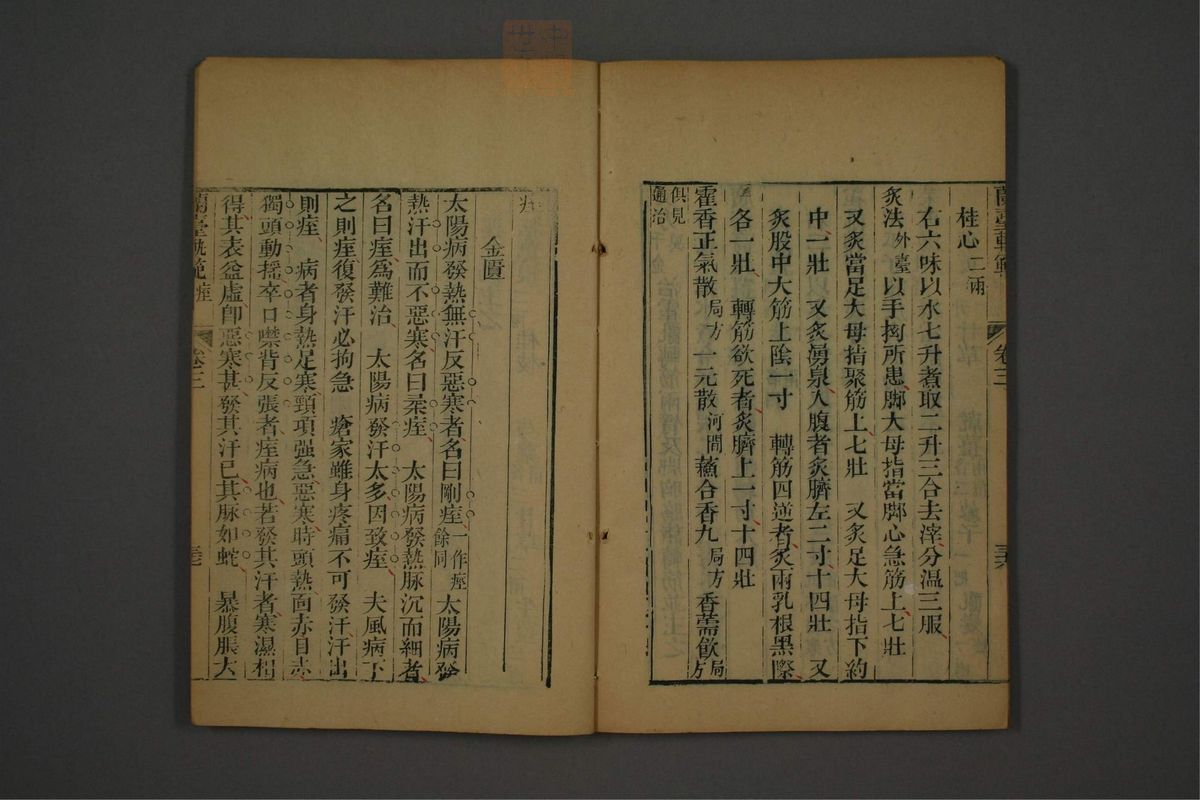 蘭臺軌範 卷三
桂心二兩
右六味以水七升煮取二升三合去滓分温三服
灸法外臺以手拘所患脚大母指當脚心急筋上七壯
又灸當足大母指聚筋上七壯 又灸足大母指下約
中一壯 又灸湧泉入腹者灸臍左二寸十四壯 又
灸股中大筋上陰一寸 轉筋四逆者灸兩乳根黑際
各一壯 轉筋欲死者灸臍上一寸十四壯
霍香正氣散局方一元散河間蘓合香九局方香薷飲局方
俱見通治
痓
金匱
太陽病發熱無汗反惡寒者名曰剛痓一作痙餘同太陽病發
熱汗出而不惡寒名曰柔痓 太陽病發熱脉沉而細者
名曰痓爲難治 太陽病發汗太多因致痓 夫風病下
之則痓復發汗必拘急 瘡家雖身疼痛不可發汗汗出
則痓 病者身熱足寒頸項强急惡寒時頭熱面赤目赤
獨頭動摇卒口噤背反張者痓病也若發其汗者寒濕相
得其表益虛卽惡寒甚發其汗已其脉如蛇 暴腹脹大
蘭臺軌範 痓 卷三